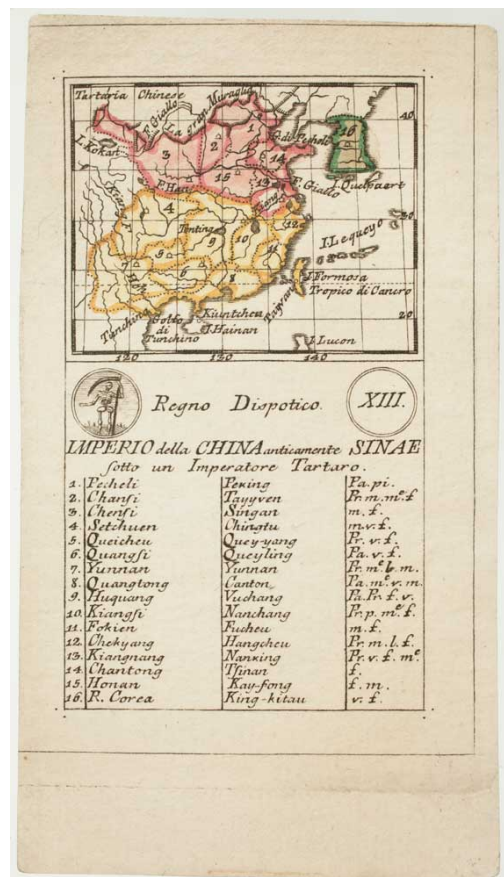 Tartaria Chinese
F. Giallo
La gran Muraglia
40
L. Kokan
3
2
1
16
G. di Pecheli
14
15
13
F. Giallo
I. Quelpaert
F. Hen
Kiang F.
4
30
Tonting
9
10
12
11
I. Lequeyo
5
6
8
7
I. Formosa
Tropico di Cancro
Tunching
Golfo
di
Tunchino
Kiuntcheu
I. Hainan
20
I. Lucon
120
130
140
Regno Dispotico.
XIII.
IMPERIO della CHINA anticamente SINAE
sotto un Imperatore Tartaro.
1. Pecheli Peking Pa. pi.
2. Chansi Tayyven Pr. m. mᵉ. f
3. Chensi Singan m. f.
4. Setchuen Chingtu m. v. f.
5. Queicheu Quey-yang Pr. v. f.
6. Quangsi Queyling Pa. v. f.
7. Yunnan Yunnan Pr. mᵉ. b. m.
8. Quangtong Canton Pa. mᵉ. v. m.
9. Huquang Vuchang Pa. Pr. f. v.
10. Kiangsi Nanchang Pr. p. mᵉ. f.
11. Fokien Fucheu m. f.
12. Chekyang Hangcheu Pr. m. l. f.
13. Kiangnang Nanking Pr. v. f. mᵉ.
14. Chantong Tsinan f.
15. Honan Kay-fong f. m.
16. R. Corea King-kitau v. f.